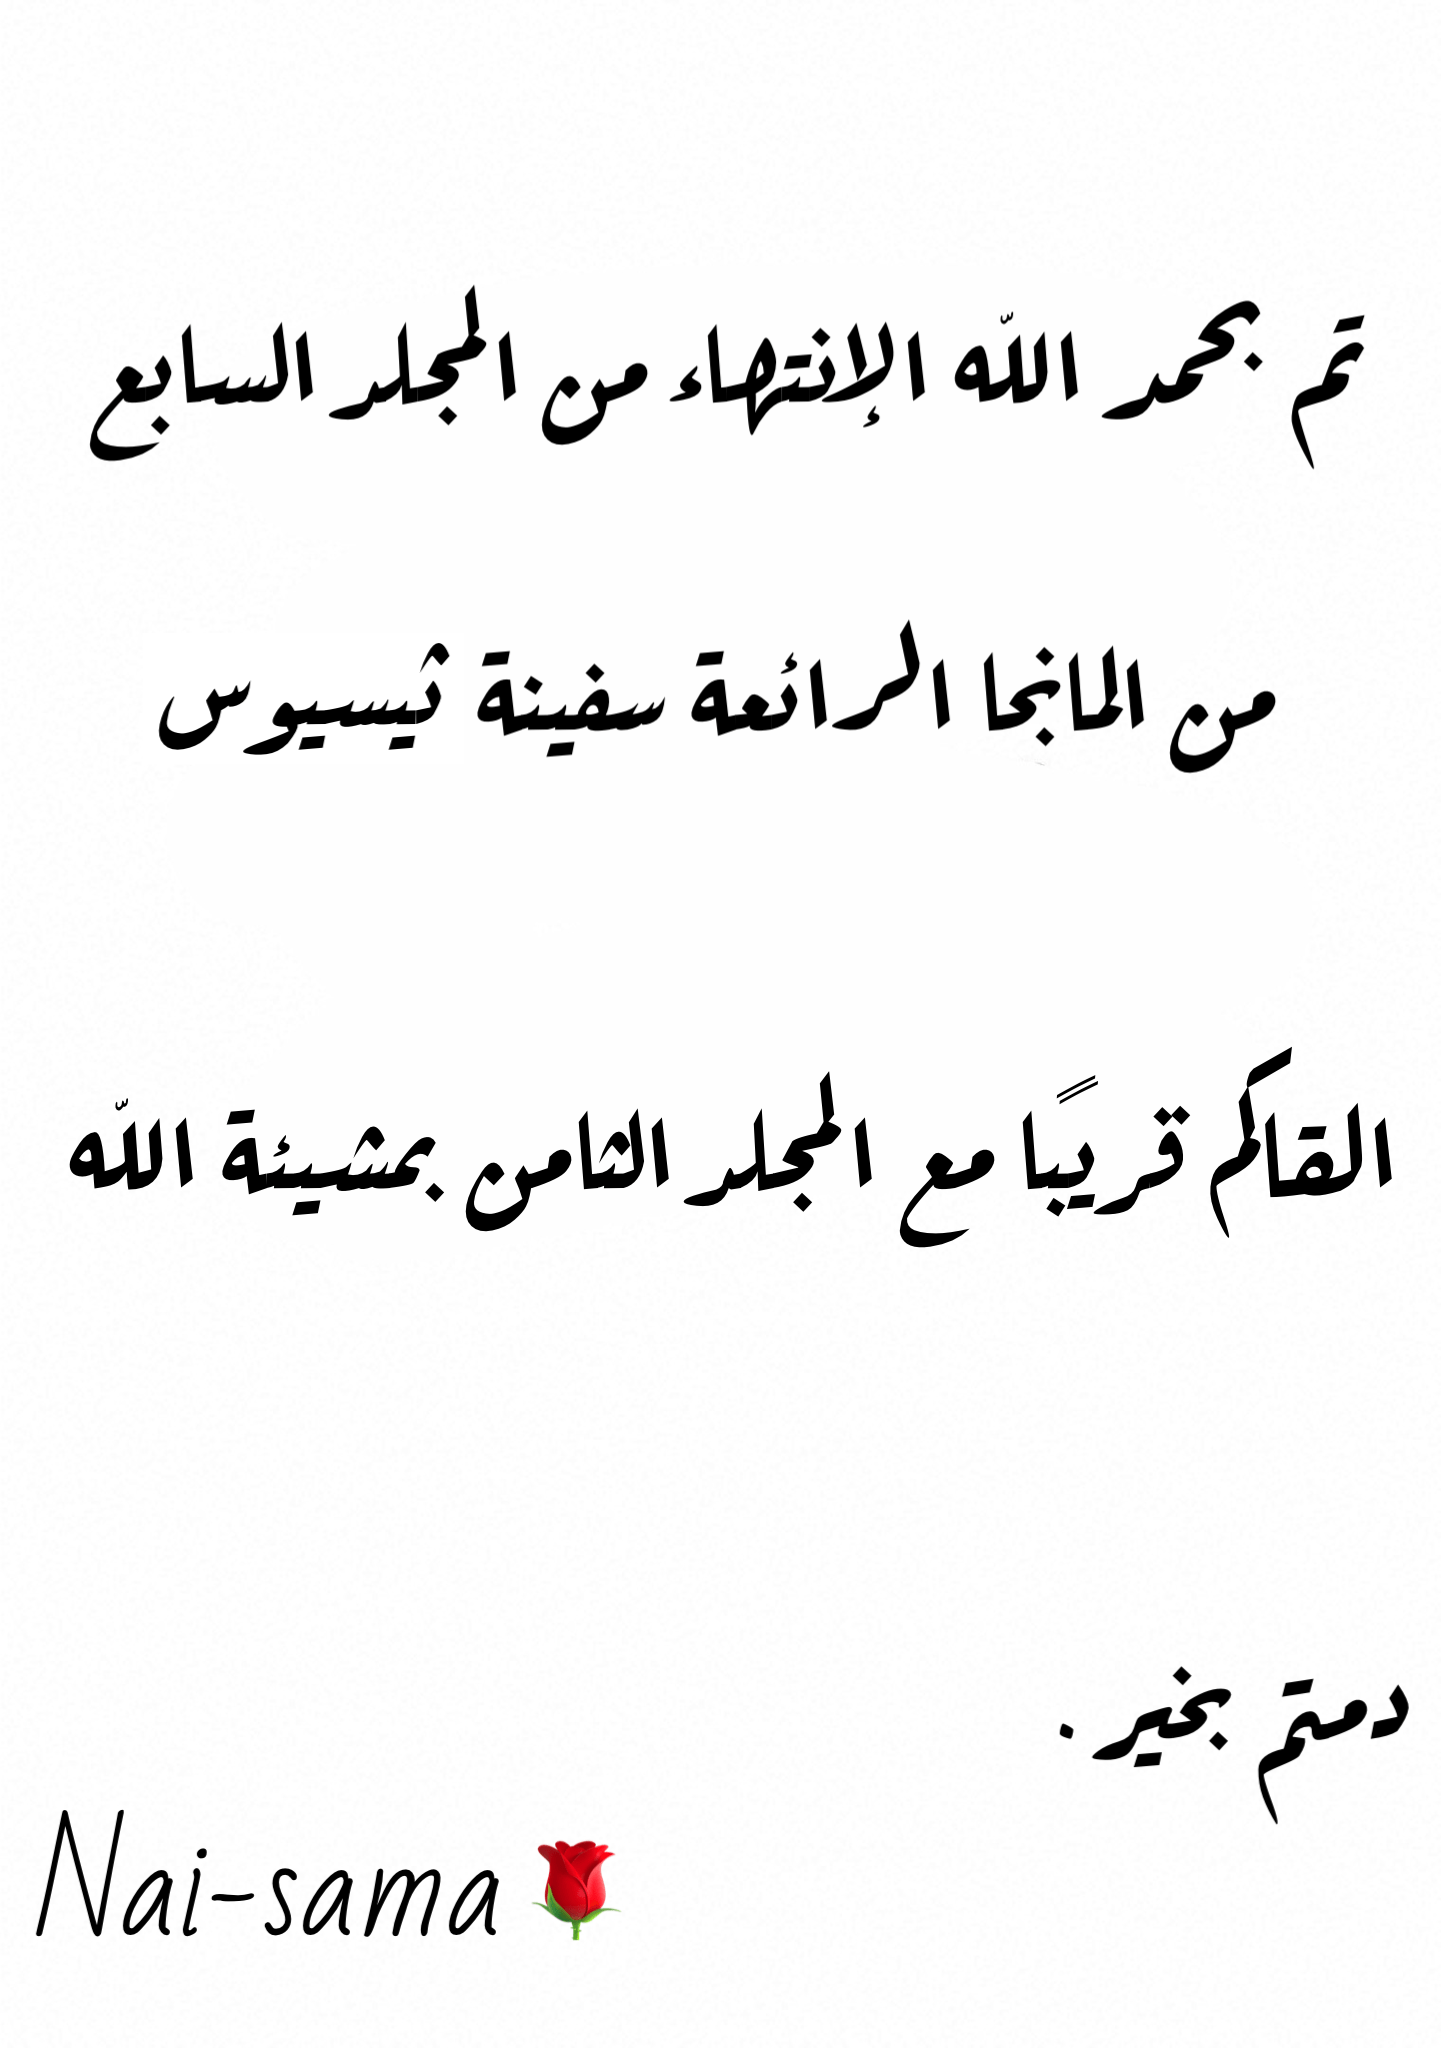 تم بحمد اللّه الإنتهاء من المجلد السابع
من المانجا الرائعة سفينة ثيسيوس
القاكم قريبًا مع المجلد الثامن بمشيئة اللّه
دمتم بخير .
Nai-sama🌹